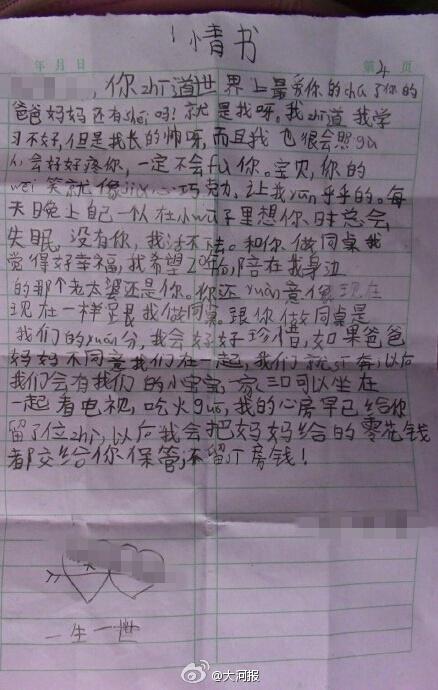 情书
年 月 日 第 4 页
，你zhī道世界上最爱你的chú了你的
爸爸妈妈还有shéi吗！就是我呀。我zhī道我学
习不好，但是我长的帅呀，而且我也很会照gù
人，会好好疼你，一定不会fù你。宝贝，你的
wēi笑就像jiā心巧克力，让我yūn乎乎的。每
天晚上自己一人在小wū子里想你，日子总会
失眠，没有你，我活不去。和你做同桌我
觉得好幸福，我希望20年后，陪在我身边
的那个老太婆还是你。你还yuàn意像现在
现在一样至艮我做同桌。跟你做同桌是
我们的yuán分，我会好好珍惜，如果爸爸
妈妈不同意我们在一起，我们就sī奔，以后
我们会有我们的小宝宝，一家三口可以坐在
一起看电视，吃火guō，我的心房早已给你
留了位zhì，以后我会把妈妈给的零花钱
都交给你保管，不留sī房钱！
一生一世
@大河报